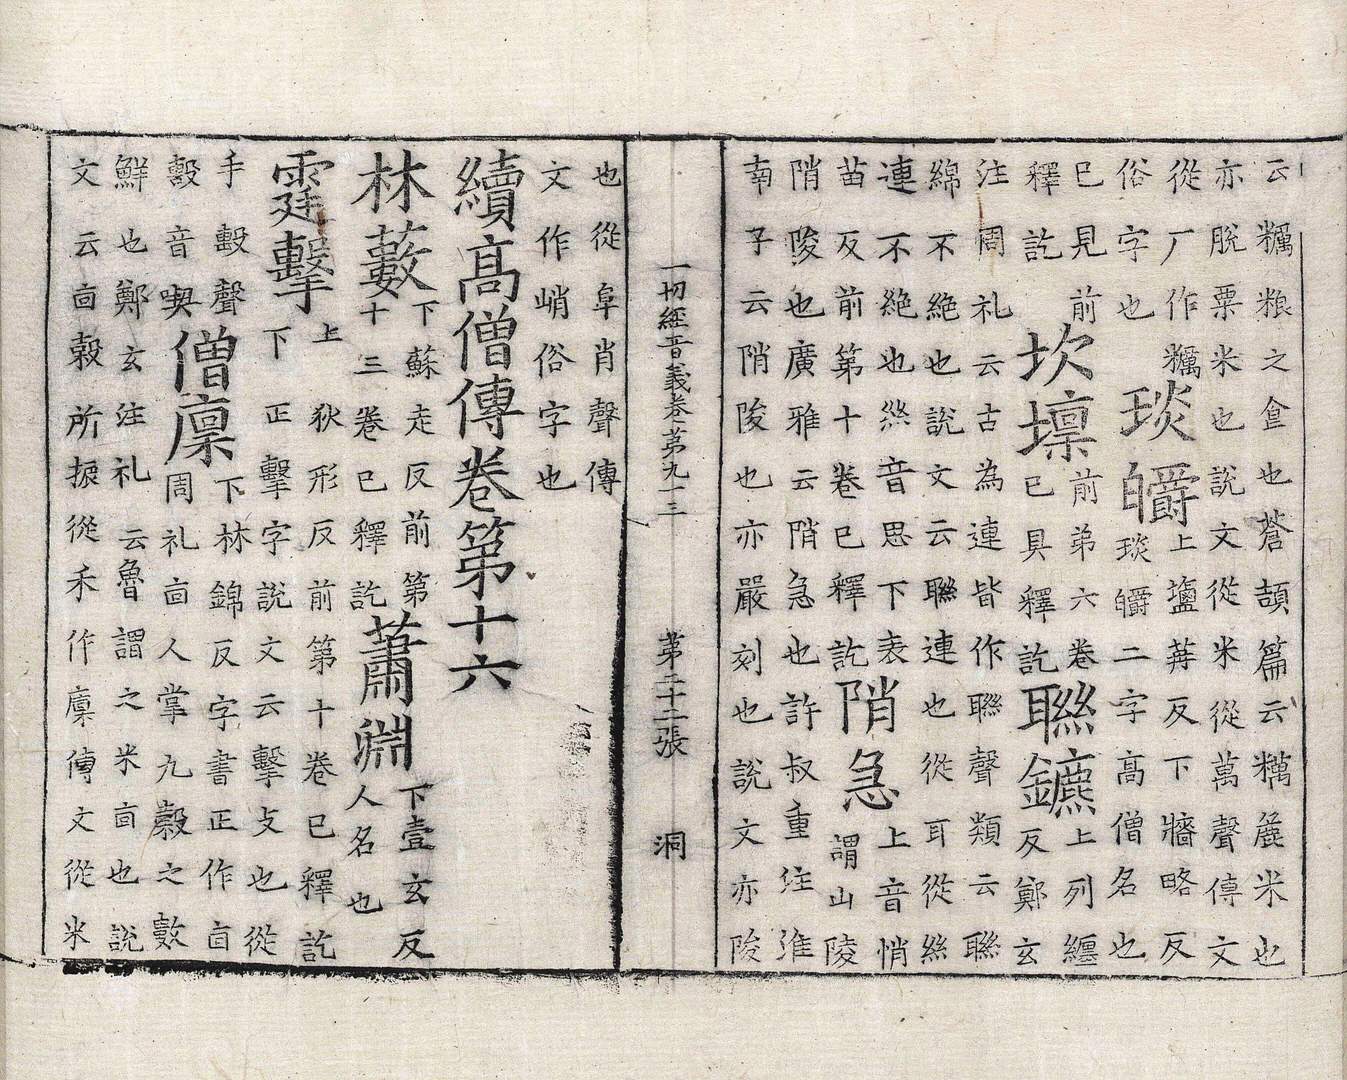 云糲粮之食也蒼頡篇云糲麁米也
亦脫粟米也說文從米從萬聲傳文
從厂作糲
俗字也
琰皭
上壏苒反下牆略反
琰皭二字高僧名也
已見前
釋訖
坎壈
前弟六卷
已具釋訖
聯鑣
上列纏
反鄭玄
注周礼云古為連皆作聯聲類云聯
綿不絕也說文云聯連也從耳從絲
連不絕也絲音思下表
苗反前第十卷已釋訖
陗急
上音悄
謂山陵
陗陵也廣雅云陗急也許叔重注淮
南子云陗陖也亦嚴刻也說文亦陖
一切經音義卷第九十三 第二十二張 洞
也從阜肖聲傳
文作峭俗字也
續高僧傳卷第十六
林藪
下蘇走反前第
十三卷已釋訖
蕭淵
下壹玄反
人名也
霆擊
上狄形反前第十卷已釋訖
下正擊字說文云擊攴也從
手毄聲
毄音喫
僧廩
下林錦反字書正作㐭
周礼㐭人掌九穀之數
鮮也鄭玄注礼云魯謂之米㐭也說
文云㐭穀所振從禾作廩傳文從米